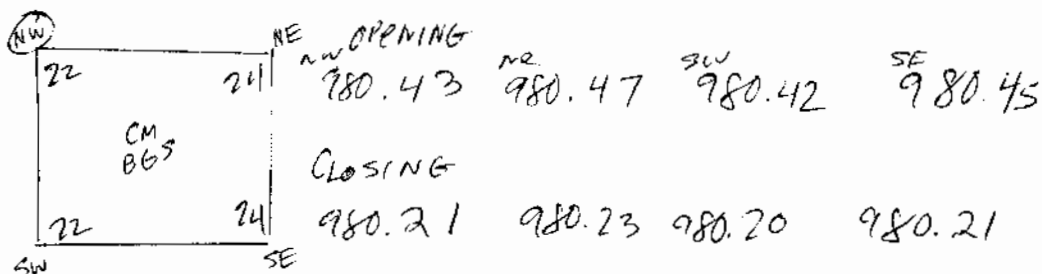 NW NE
22 24
CM
BGS
22 24
SW SE
OPENING
NW NE SW SE
980.43 980.47 980.42 980.45
CLOSING
980.21 980.23 980.20 980.21